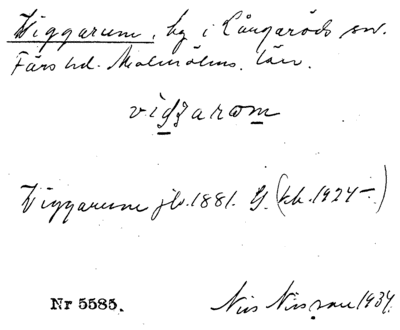 Viggarum, by i Långaröds sn.
Färs hd. Malmöhus län.
vìgarωm
Viggarum jb. 1881. G. (kb. 1924–)
Nr 5585. Nils Nilsson 1934.